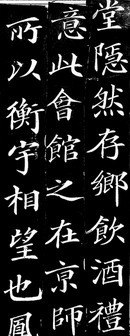 堂隱然存鄉飲酒禮
意此會館之在京師
所以衡宇相望也鳳